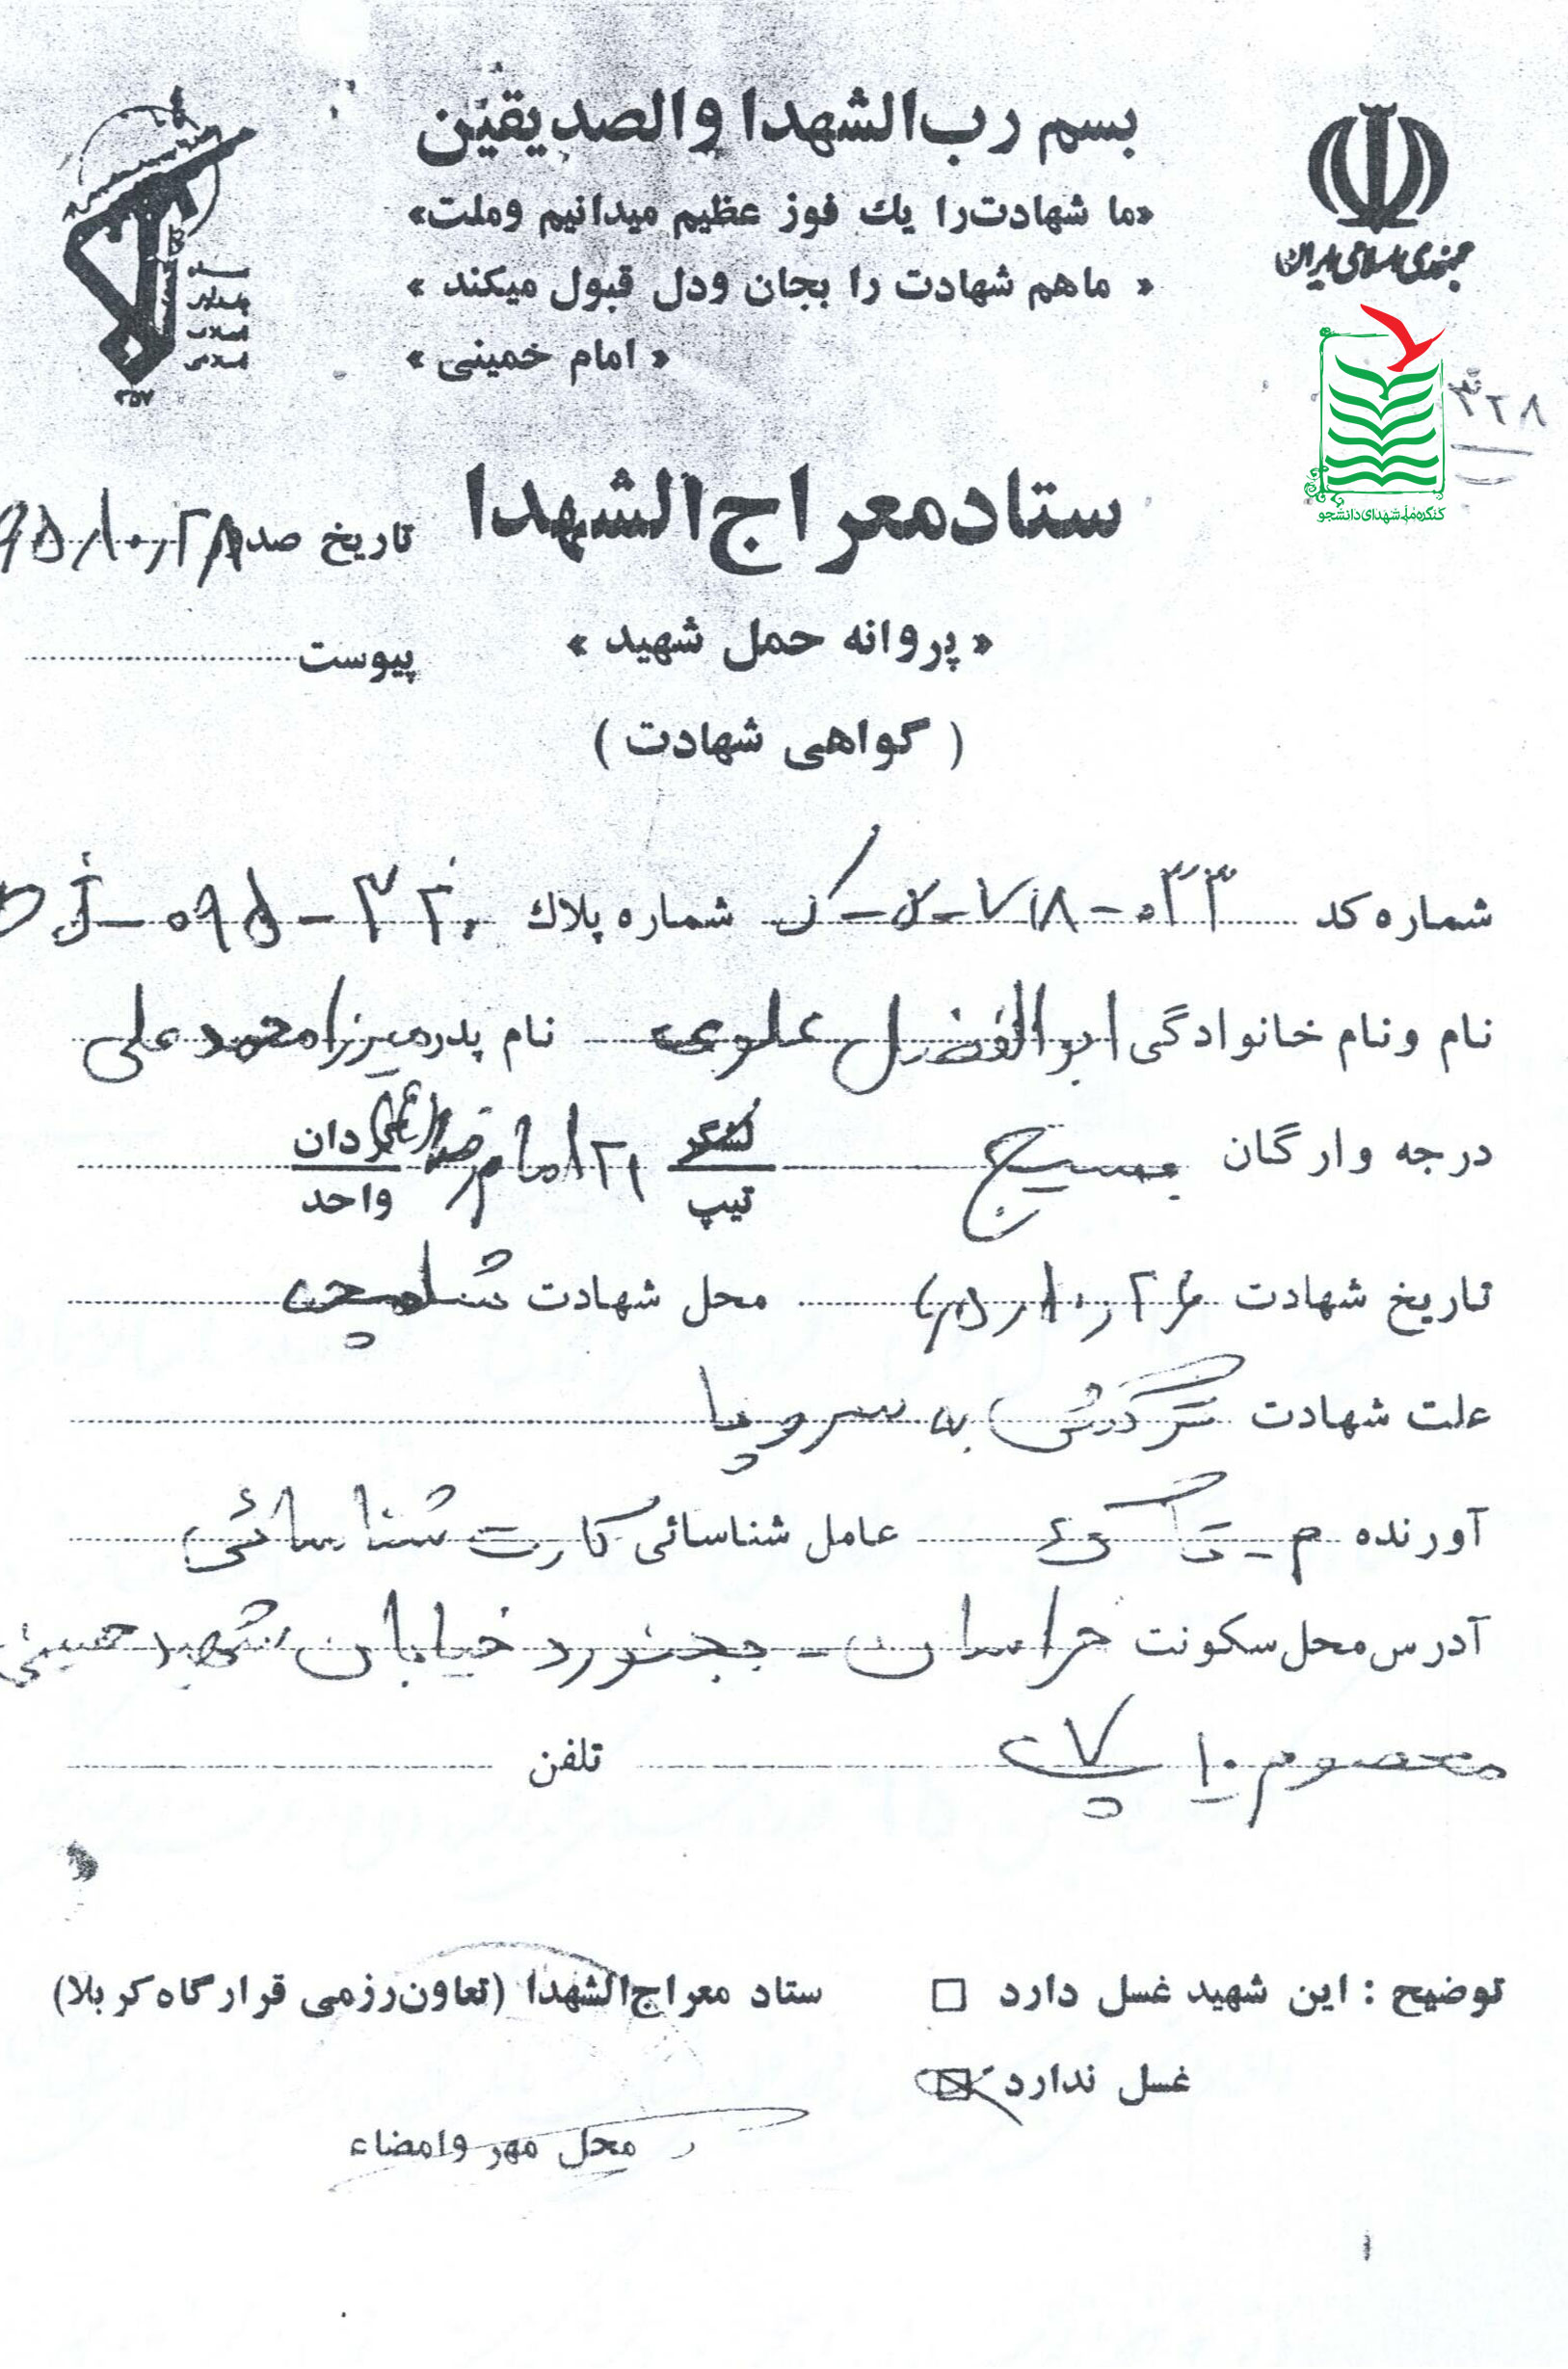 بسم رب الشهدا والصدیقین
«ما شهادت را یك فوز عظیم میدانیم وملت»
« ماهم شهادت را بجان ودل قبول میکند »
« امام خمینی »
جمهوری اسلامی ایران
۳۲۸
کنگره ملی شهدای دانشجو
ستاد معراج الشهدا
تاریخ صد ۶۵/۱۰/۲۸
« پروانه حمل شهید »
پیوست
( گواهی شهادت )
شماره کد ۰۳۳ - ۷۱۸ - شماره پلاك
نام ونام خانوادگی ابوالفضل علوی نام پدر میرزا محمد علی
درجه وارگان بسیج لشگر تیپ ۲۱ امام رضا (ع) گردان واحد
تاریخ شهادت ۶۵/۱۰/۲۶ محل شهادت شلمچه
علت شهادت ترکش به سر و پا
آورنده عامل شناسائی کارت شناسائی
آدرس محل سکونت خراسان - بجنورد خیابان شهید حسینی
معصوم ۱۰ پ ۷ تلفن
توضیح : این شهید غسل دارد ستاد معراج الشهدا (تعاون رزمی قرارگاه کربلا)
غسل ندارد
محل مهر وامضاء